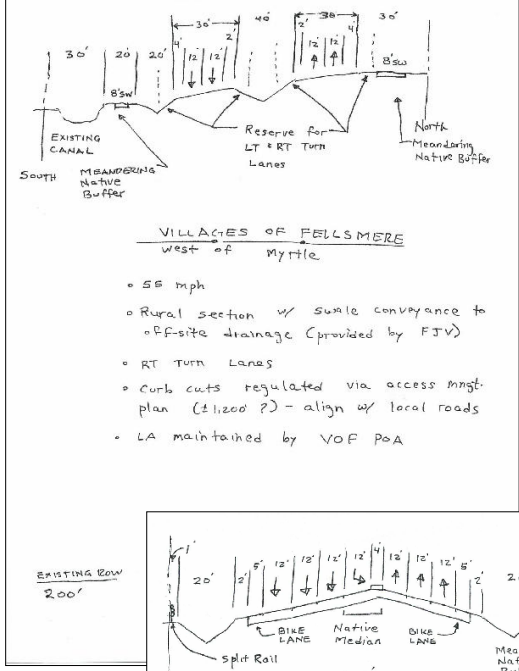 30' 40' 30' 30'
4' 2' 2' 4'
30' 20' 20' 12' 12' 12' 12'
8'SW 8'SW
EXISTING CANAL
SOUTH
MEANDERING Native Buffer
Reserve for LT & RT Turn Lanes
North
Meandering Native Buffer
VILLAGES OF FELLSMERE
west of Myrtle
• 55 mph
• Rural section w/ swale conveyance to
off-site drainage (provided by FJV)
• RT Turn Lanes
• Curb cuts regulated via access mngt.
plan (±1,200' ?) - align w/ local roads
• LA maintained by VOF POA
EXISTING ROW
200'
1'
20' 2' 5' 12' 12' 12' 12' 4' 12' 12' 12' 5' 2' 2
BIKE LANE
Native Median
BIKE LANE
Split Rail